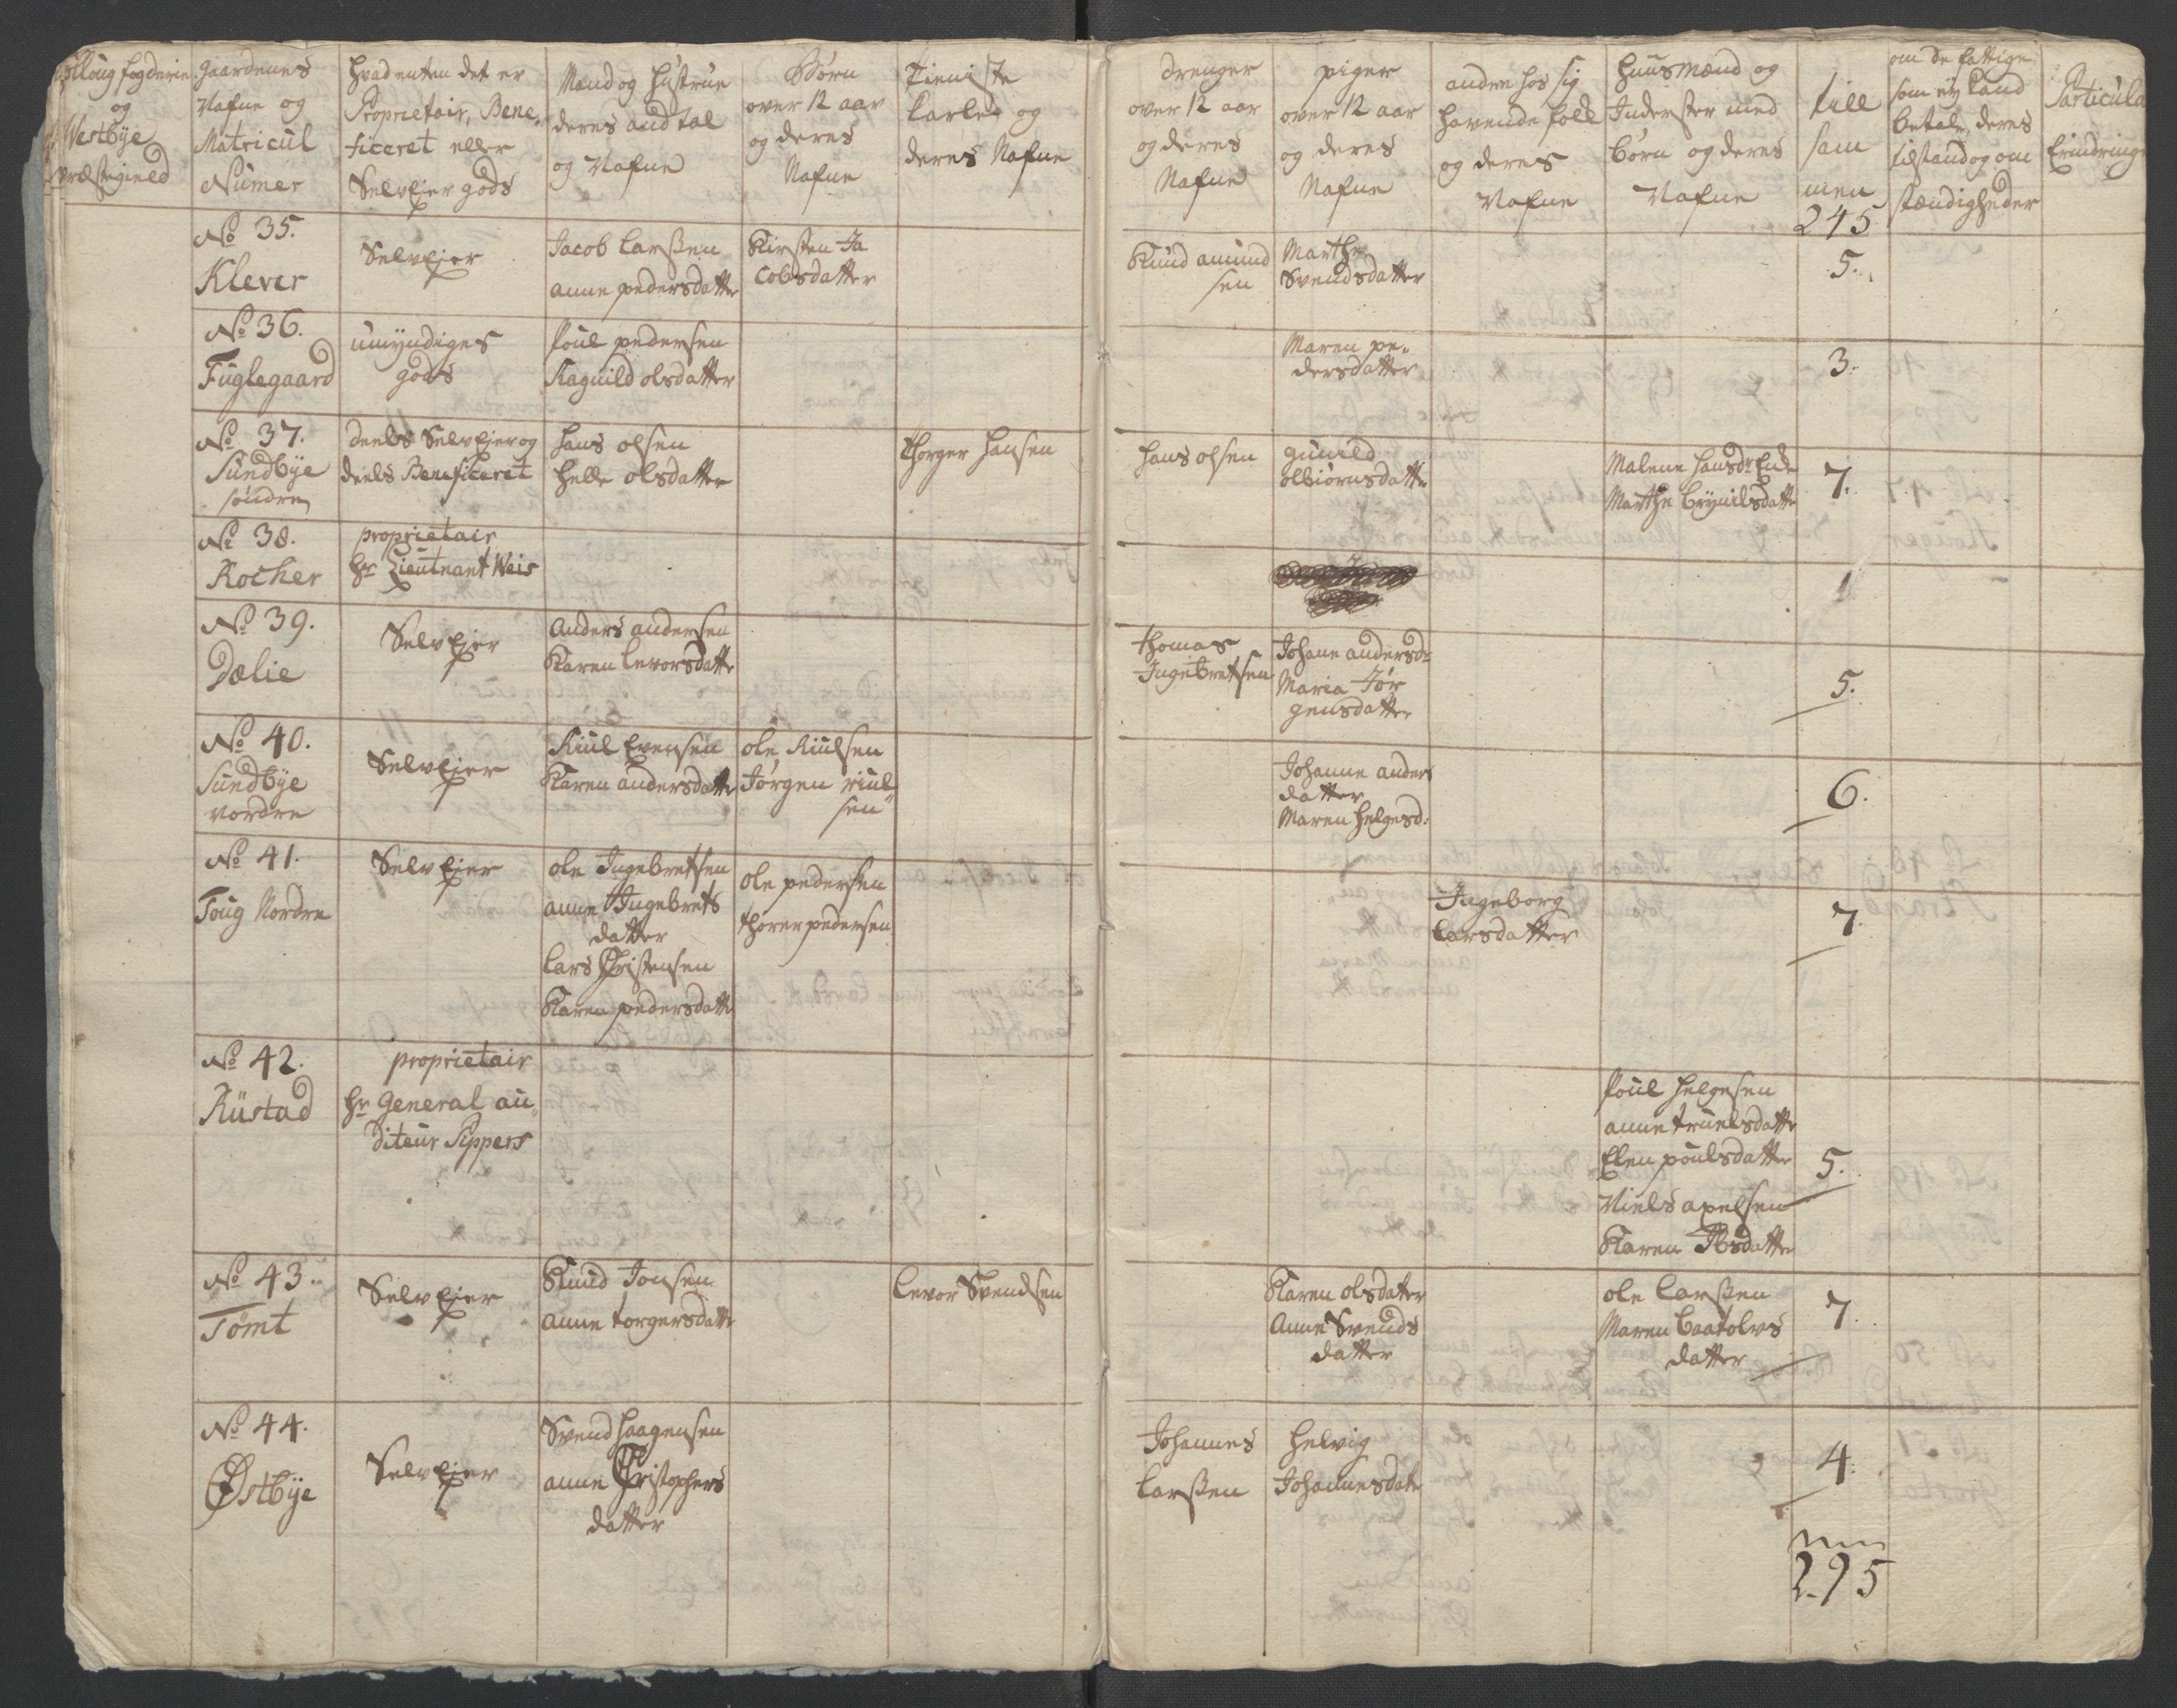 fogderie
og
Westbye
Præstegield
Gaardenes
Nafne og
Matricul
Numer
Hvad enten det er
Proprietair, Bene,
ficeret eller
Selvejer gods
Mand og Hustrue
deres andtal
og Nafne
Børn
over 12 aar
og deres
Nafne
Tieniste
karle og
deres Nafne
drenger
over 12 aar
og deres
Nafne
piger
over 12 aar
og deres
Nafne
andre hos sig
havende folk
og deres
Nafne
Huusmænd og
Inderster med
børn og deres
Nafne
till
sam
men
245
om de fattige
som ey kand
betale, deres
tilstand og om
stændigheder
Particula
Erindring
No 35.
Klever
Selvejer
Jacob Larssen
anne pedersdatter
Kirsten Ja
cobsdatter
Knud amund
sen
Marthe
Svendsdatter
5.
No 36.
Fuglegaard
umyndiges
gods
Poul pedersen
Ragnild olsdatter
Maren pe,,
dersdatter
3.
No 37.
Sundbye
søndre
deels Selvejer og
deels Beneficeret
Hans olsen
Helle olsdatter
Thorger Hansen
Hans olsen
gunild
olbiørnsdatter
Malene Hansdr Enke
Marthe Brynilsdatter
7.
No 38.
Kocher
proprietair
Hr Lieutnant Weis
1
No 39.
Dælie
Selvejer
Anders andersen
Karen Levorsdatter
Thomas
Ingebretsen
Johane andersdr
Maria Jør
gensdatter
5.
No 40.
Sundbye
nordre
Selvejer
Riul Evensen
Karen andersdatter
ole Riulsen
Jørgen riul
sen
Johanne anders
datter
Maren Helgesd:
6.
No 41.
Toug Nordre
Selvejer
ole Ingebretsen
anne Ingebrets
datter
Lars Christensen
Karen pedersdatter
ole pedersen
thorer pedersen
Ingeborg
Larsdatter
7.
No 42.
Rustad
proprietair
Hr General au,,
diteur Sippers
Poul Helgesen
anne truelsdatter
Elen poulsdatter
Niels apelsen
Karen Ibsdatter
5.
No 43.
Tømt
Selvejer
Knud Jonsen
anne torgersdatter
Levor Svendsen
Karen olsdatter
Anne Svends
datter
ole Larssen
Maren Baatolvs
datter
7.
No 44.
Østbye
Selvejer
Svend Haagensen
anne Christophers
datter
Johannes
Larssen
Helvig
Johannesdatter
4.
295